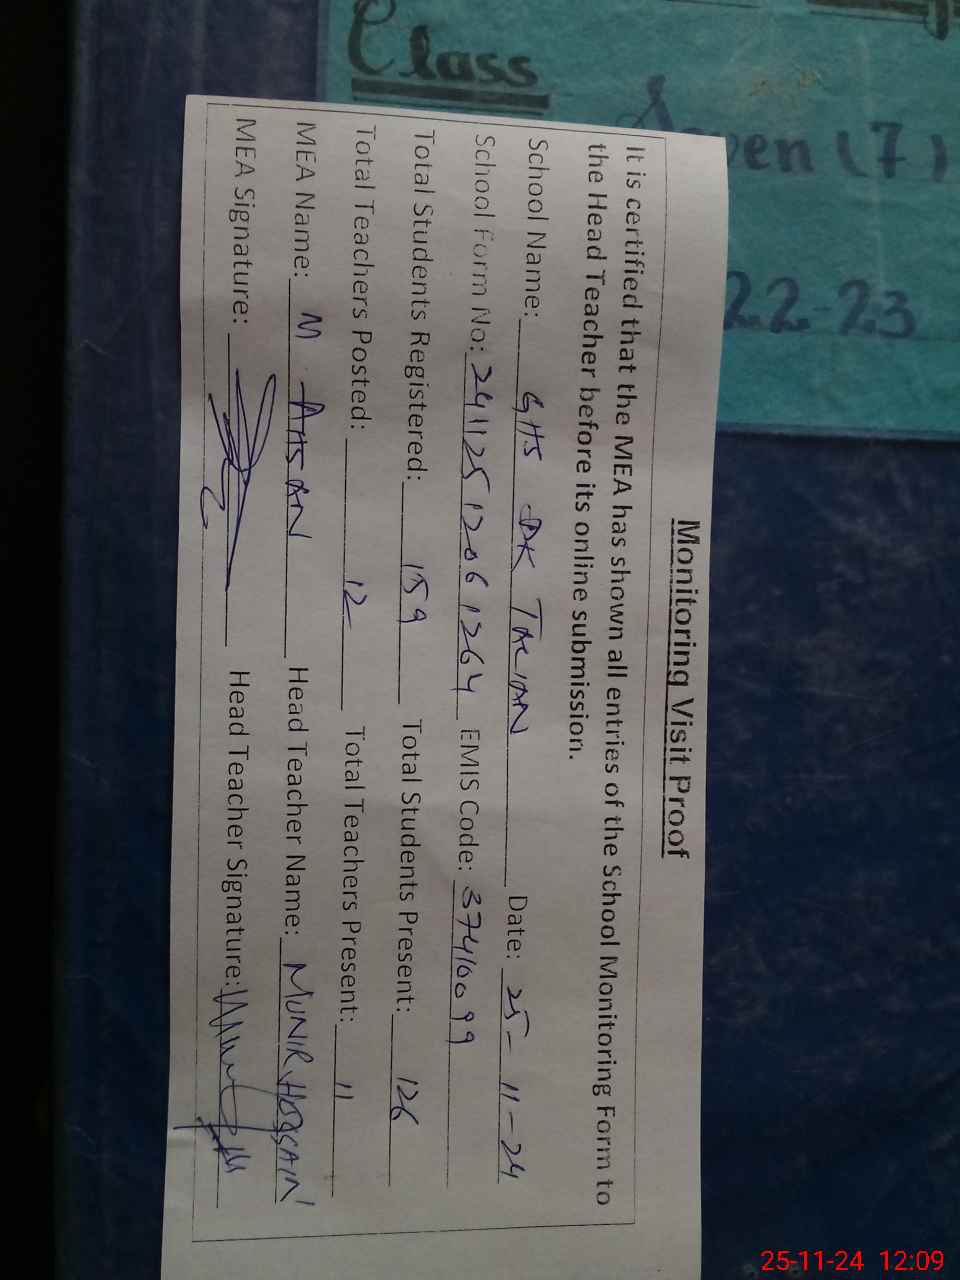 Class
Seven (7)
22-23
Monitoring Visit Proof
It is certified that the MEA has shown all entries of the School Monitoring Form to
the Head Teacher before its online submission.
School Name: GHS DK Date: 25-11-24
School Form No: 24112512061264 EMIS Code: 37410099
Total Students Registered: 159 Total Students Present: 126
Total Teachers Posted: 12 Total Teachers Present: 11
MEA Name: M AHSAN Head Teacher Name: MUNIR HUSSAIN
MEA Signature: Head Teacher Signature:
25-11-24 12:09